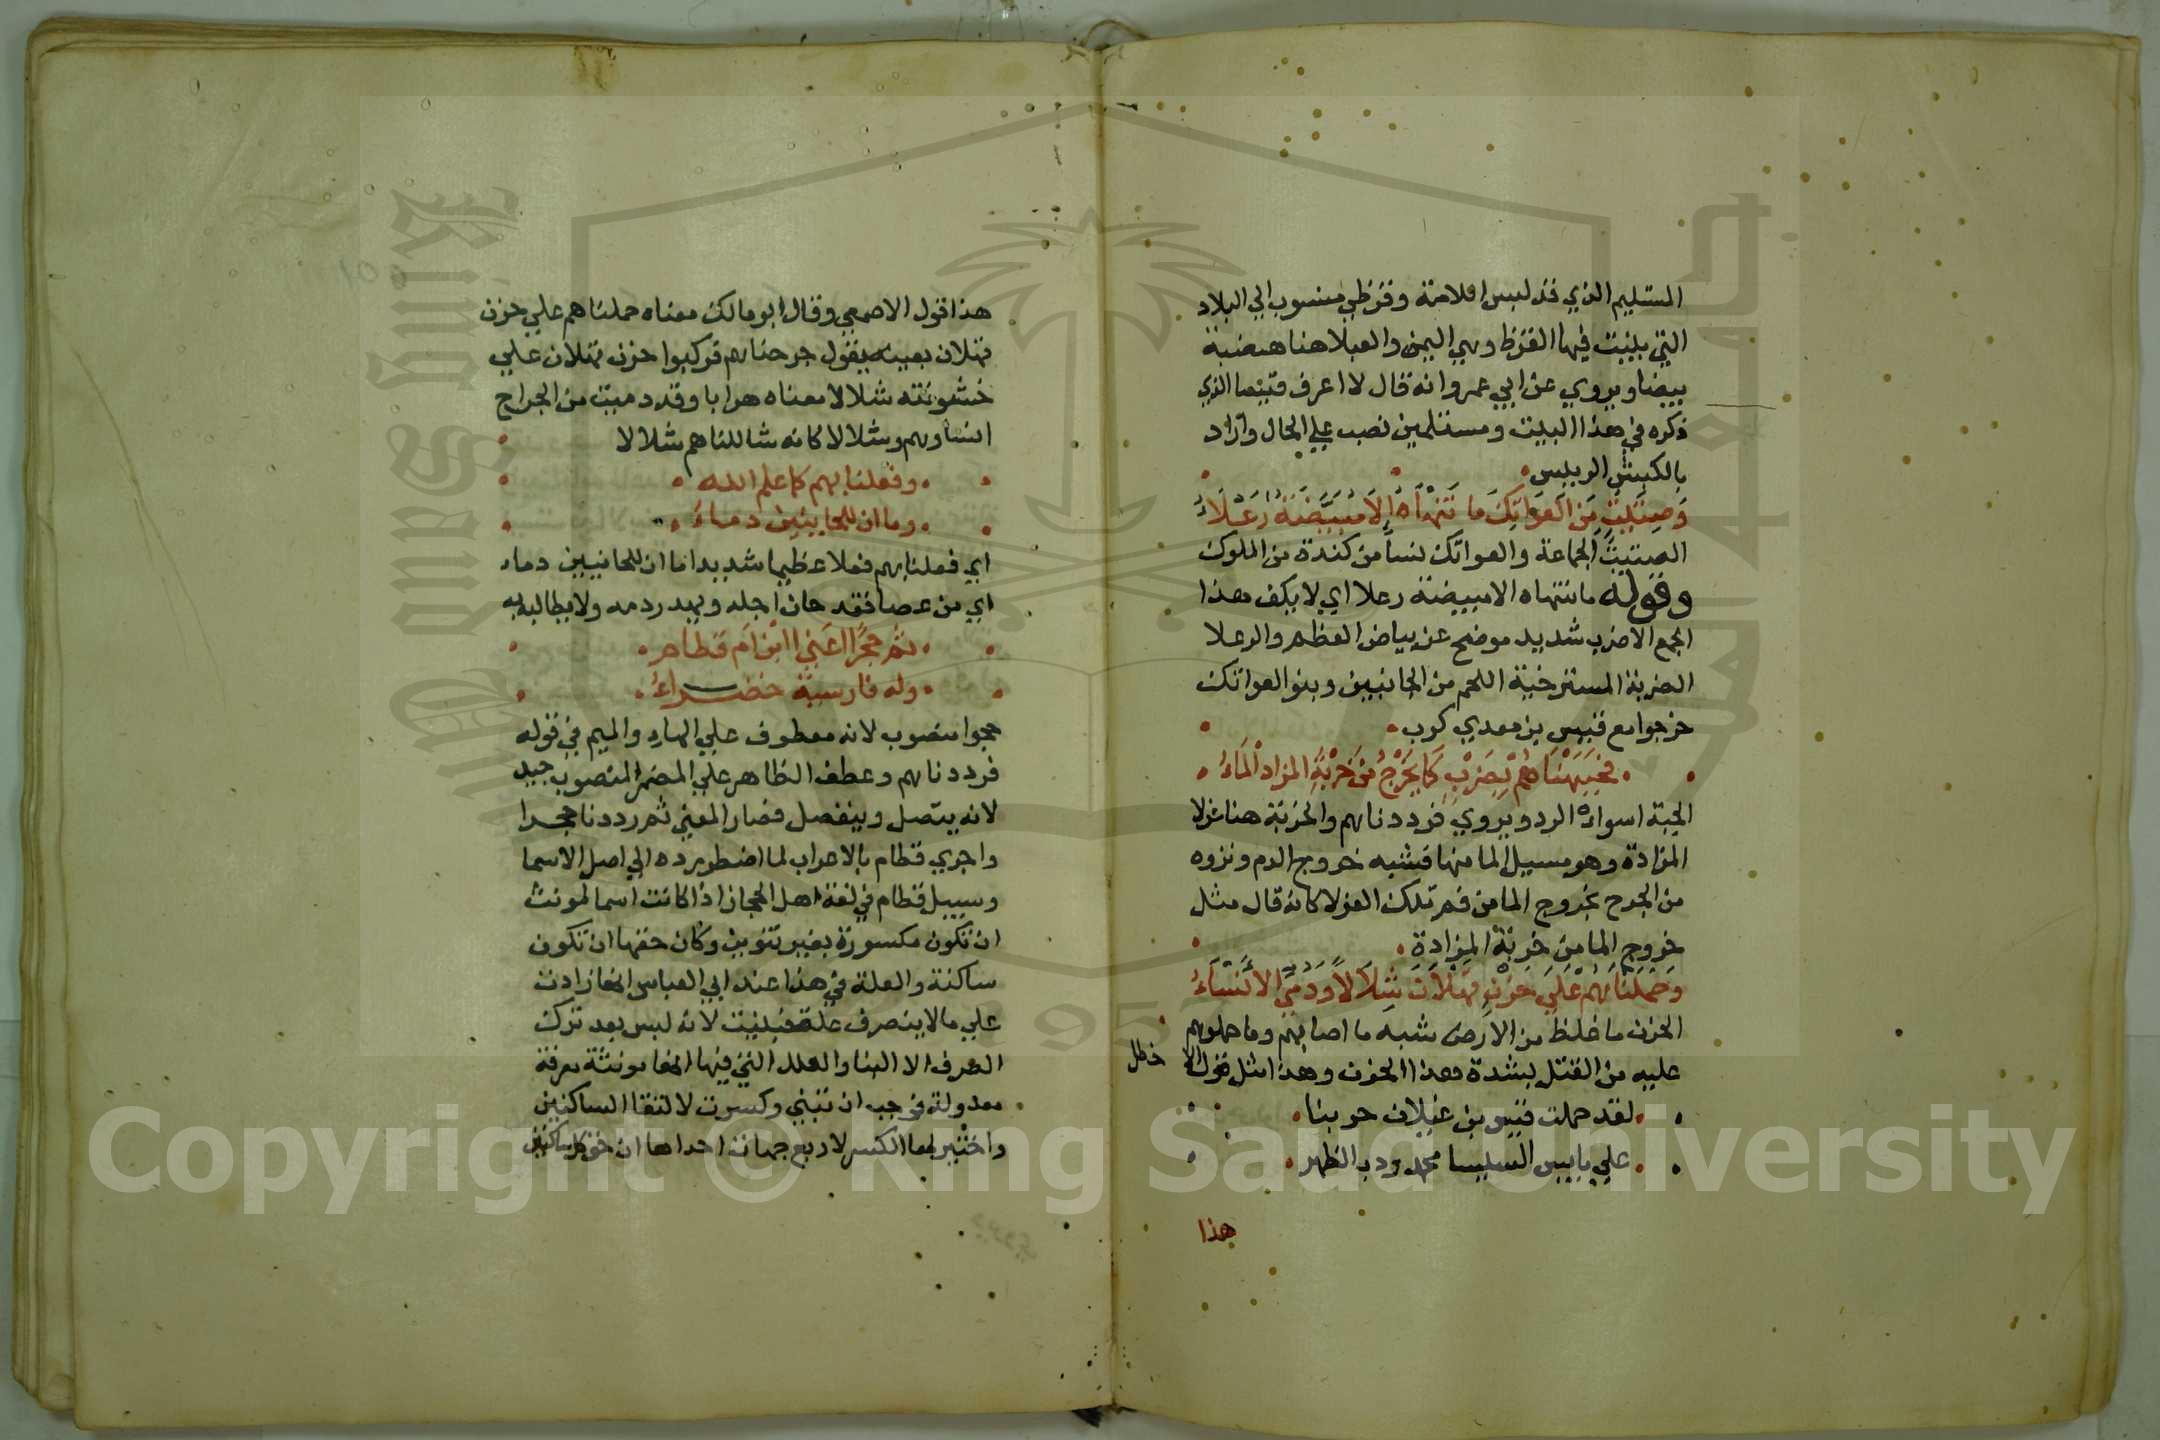 المستليم الذي قد لبس الامته وقرظي منسوب الي البلاد
التي ينبت فيها القرظ وهي اليمن والعبلا هنا هضبة
بيضا ويروي عن ابي عمرو انه قال لا اعرف قيسا الذي
ذكره في هذا البيت ومستلمين نصب علي الحال واراد
بالكبش الرييس
وَصَتِيْتٍ مِن العَواتِكَ ما تَنهاهُ اِلا مُبيَضَّةٌ رَعْلاءُ
الصتيت الجماعة والعواتك نسا من كندة من الملوك
وقوله ما تنهاه الا مبيضة رعلا اي لا يكف هذا
الجمع الا ضرب شديد موضح عن بياض العظم والرعلا
الضربة المسترخية اللحم من الجانبين وبنو العواتك
خرجوا مع قيس بن معدي كرب
فجَبَهْنَاهُمُ بِضَرْبٍ كَما يَخْرُجُ مِن خُرْبَةِ المزادِ الْمَاءُ
الجبة اسواء الرد ويروي فرددناهم والخربة هنا عزلا
المزادة وهو مسيل الما منها فشبه خروج الدم ونزوه
من الجرح بخروج الما من فم تلك العزلا كانه قال مثل
خروج الما من خربة المزادة
وَحَمَلْنَاهُمْ عَلَي حَزْنِ ثَهْلَانَ شِلَالاً وَدُمِّيَ الأَنْسَاءُ
الحزن ما غلظ من الارض شبه ما اصابهم وما حملوهم
عليه من القتل بشدة هذا الحزن وهذا مثل قول الا
خطل
لقد حملت قيس بن عيلان حربنا
علي يابس السيسا محدودب الظهر
هذا
هذا قول الاصمعي وقال ابو مالك معناه حملناهم علي حزن
ثهلان بعينه يقول جرحناهم فركبوا حزن ثهلان علي
خشونته شلالا معناه هرابا وقد دميت من الجراح
انساوهم وشلالا كانه شاللناهم شلالا
وفعلنا بهم كما علم الله
وما ان للحاينين دماءُ
اي فعلنا بهم فعلا عظيما شديدا ما ان للحاينين دماء
اي من عصا فقد حان اجله ويهدر دمه ولا يطالب به
ثم حجرًا اعني ابن ام قطام
وله فارسية خضراءُ
حجرا منصوب لانه معطوف علي الهاء والميم في قوله
فرددناهم وعطف الظاهر علي المضمر المنصوب جيد
لانه يتصل وينفصل فصار المعني ثم رددنا حجرا
واجري قطام بالاعراب لما اضطر رده الي اصل الاسما
وسبيل قطام في لغة اهل الحجاز اذا كانت اسما لمونث
ان تكون مكسورة بغير تنوين وكان حقها ان تكون
ساكنة والعلة في هذا عند ابي العباس انها زادت
علي ما لا ينصرف علة فبنيت لانه ليس بعد ترك
الصرف الا البنا والعلل التي فيها انها مونثة معرفة
معدولة فوجب ان تبني وكسرت لالتقا الساكنين
واختير لها الكسر لاربع جهات احداها ان حق كل ساكنين
Copyright © King Saud University
King Saud University
1957